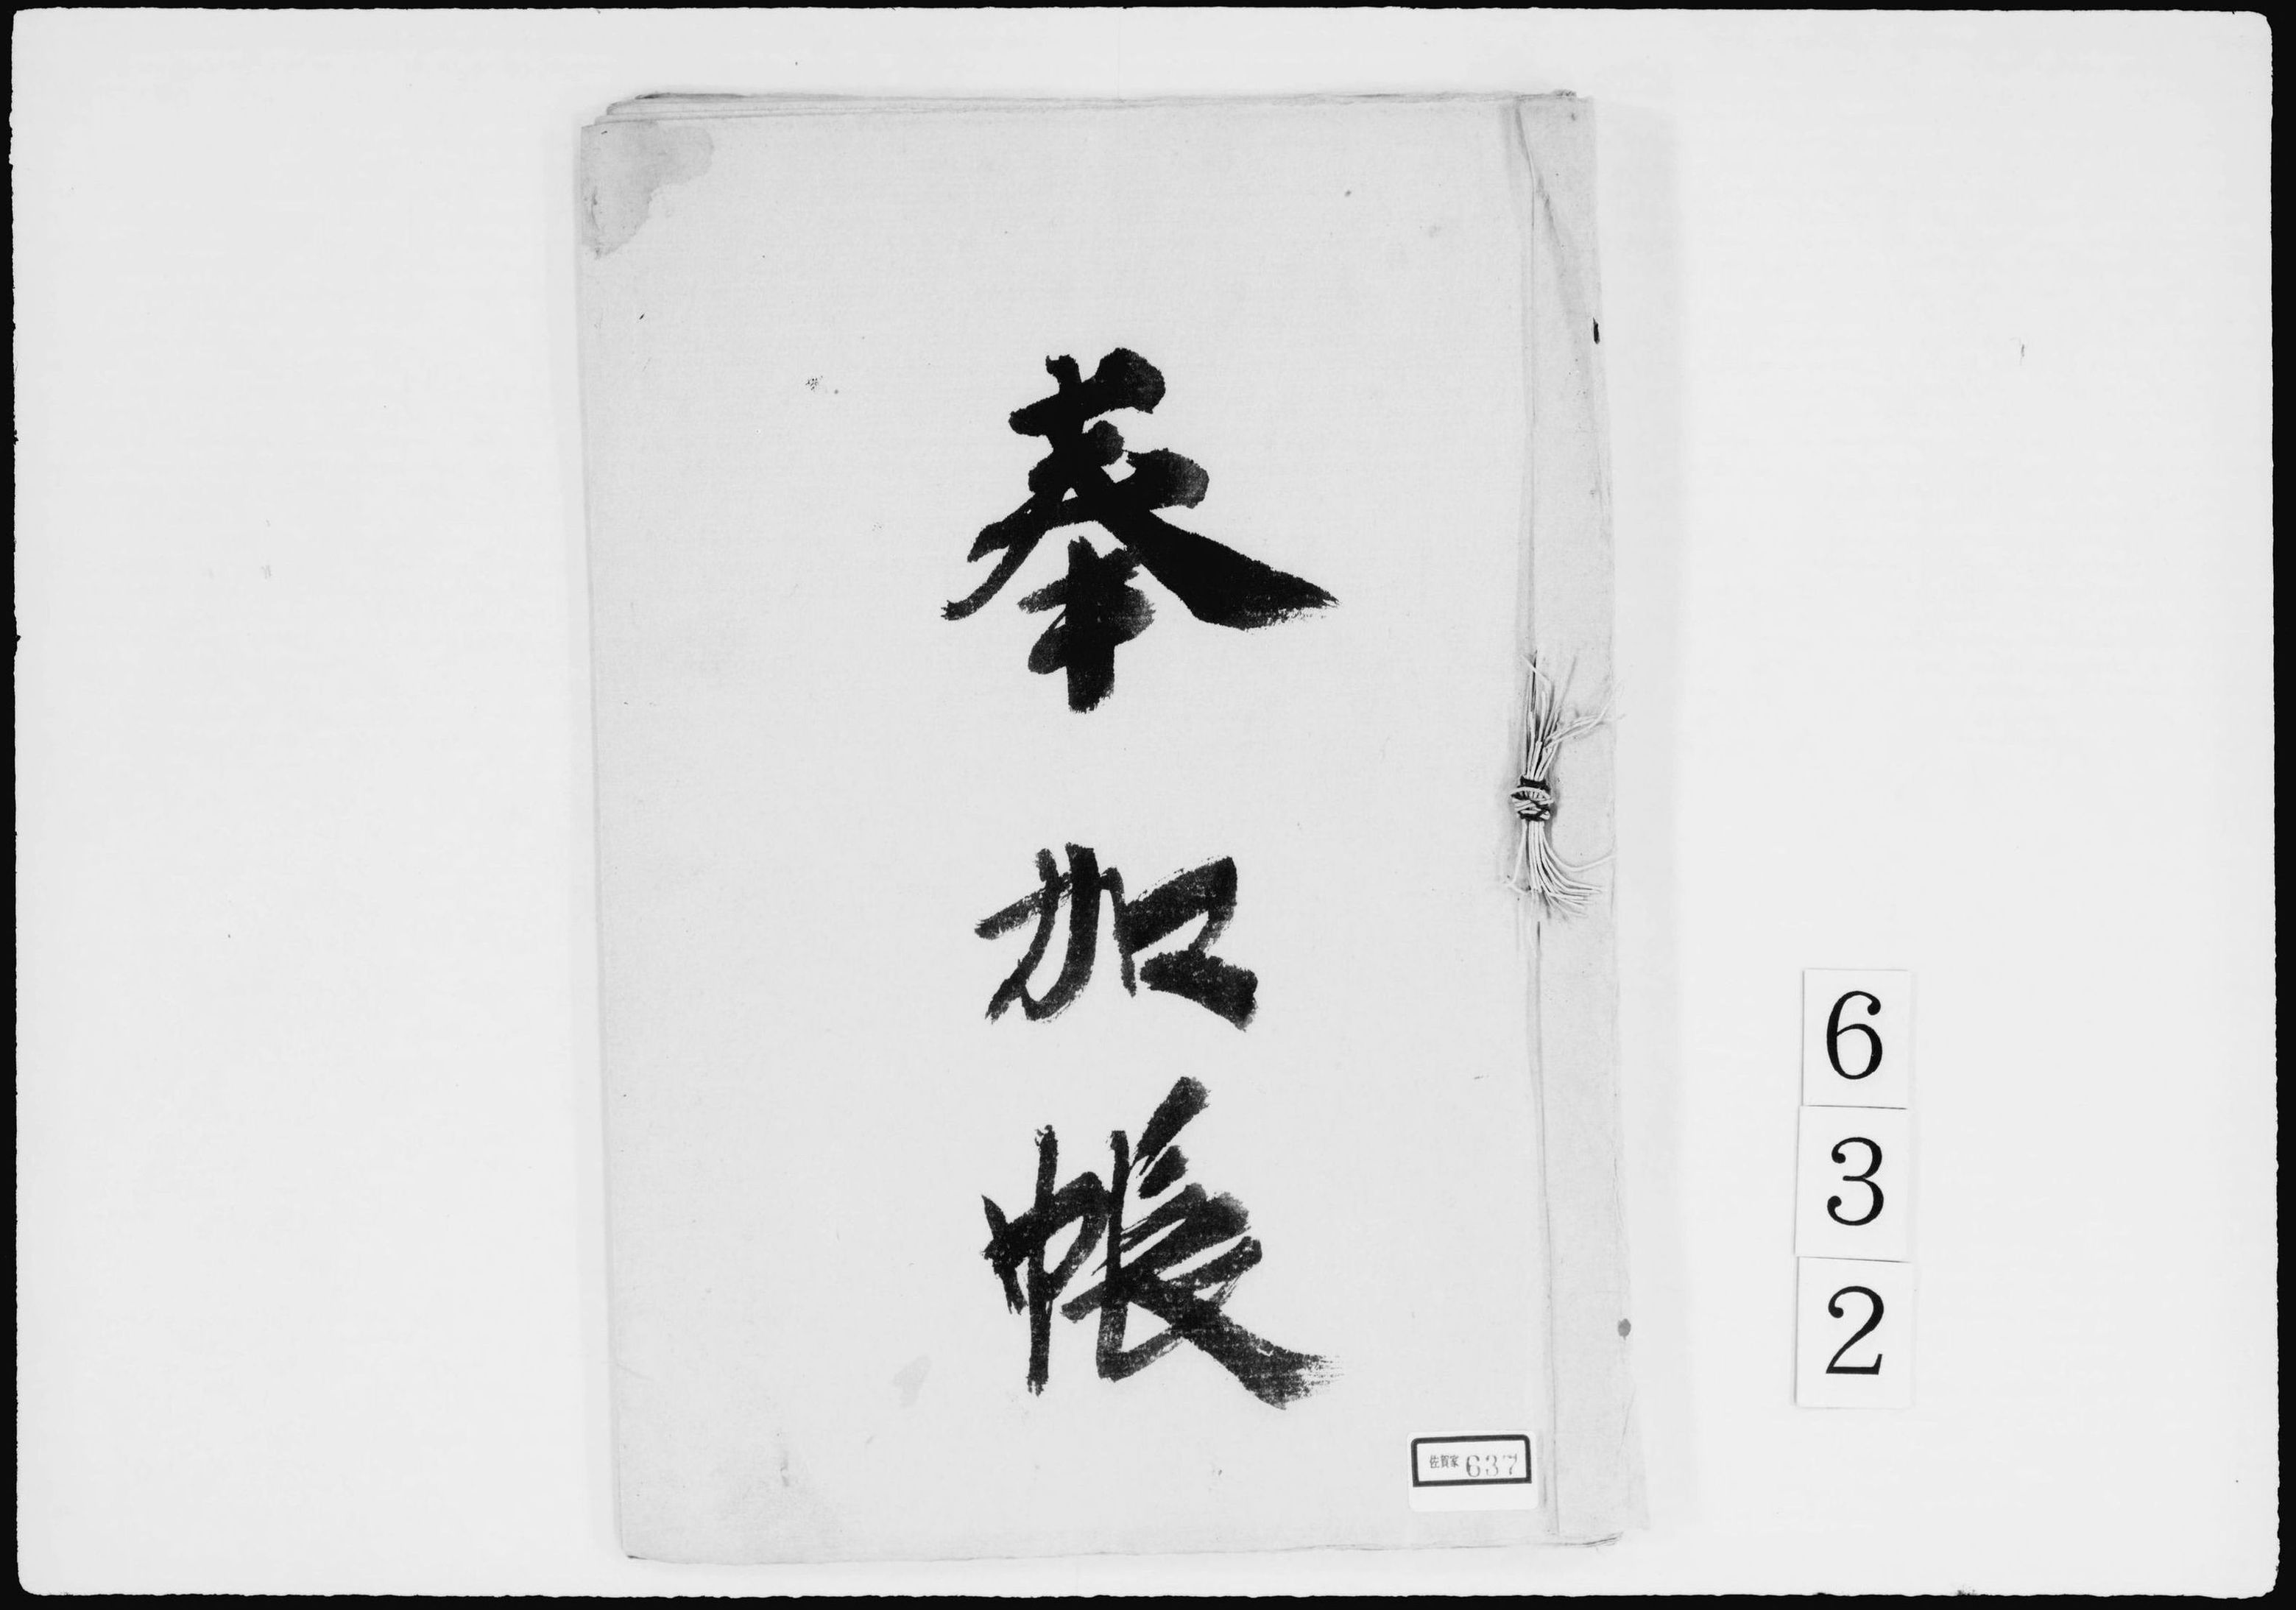 奉加帳
佐賀家 637
6
3
2